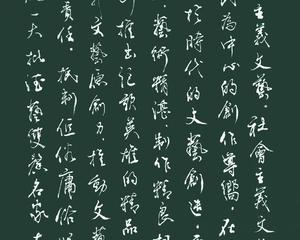 主義文藝·社會主義文
為中心的創作導嚮·在
於時代的文藝創造·
·藝術精湛·制作精良
推出謳歌英雄的精品
文藝原創力·推動文藝
責任·抵制低俗庸俗
一大批德藝雙馨名家